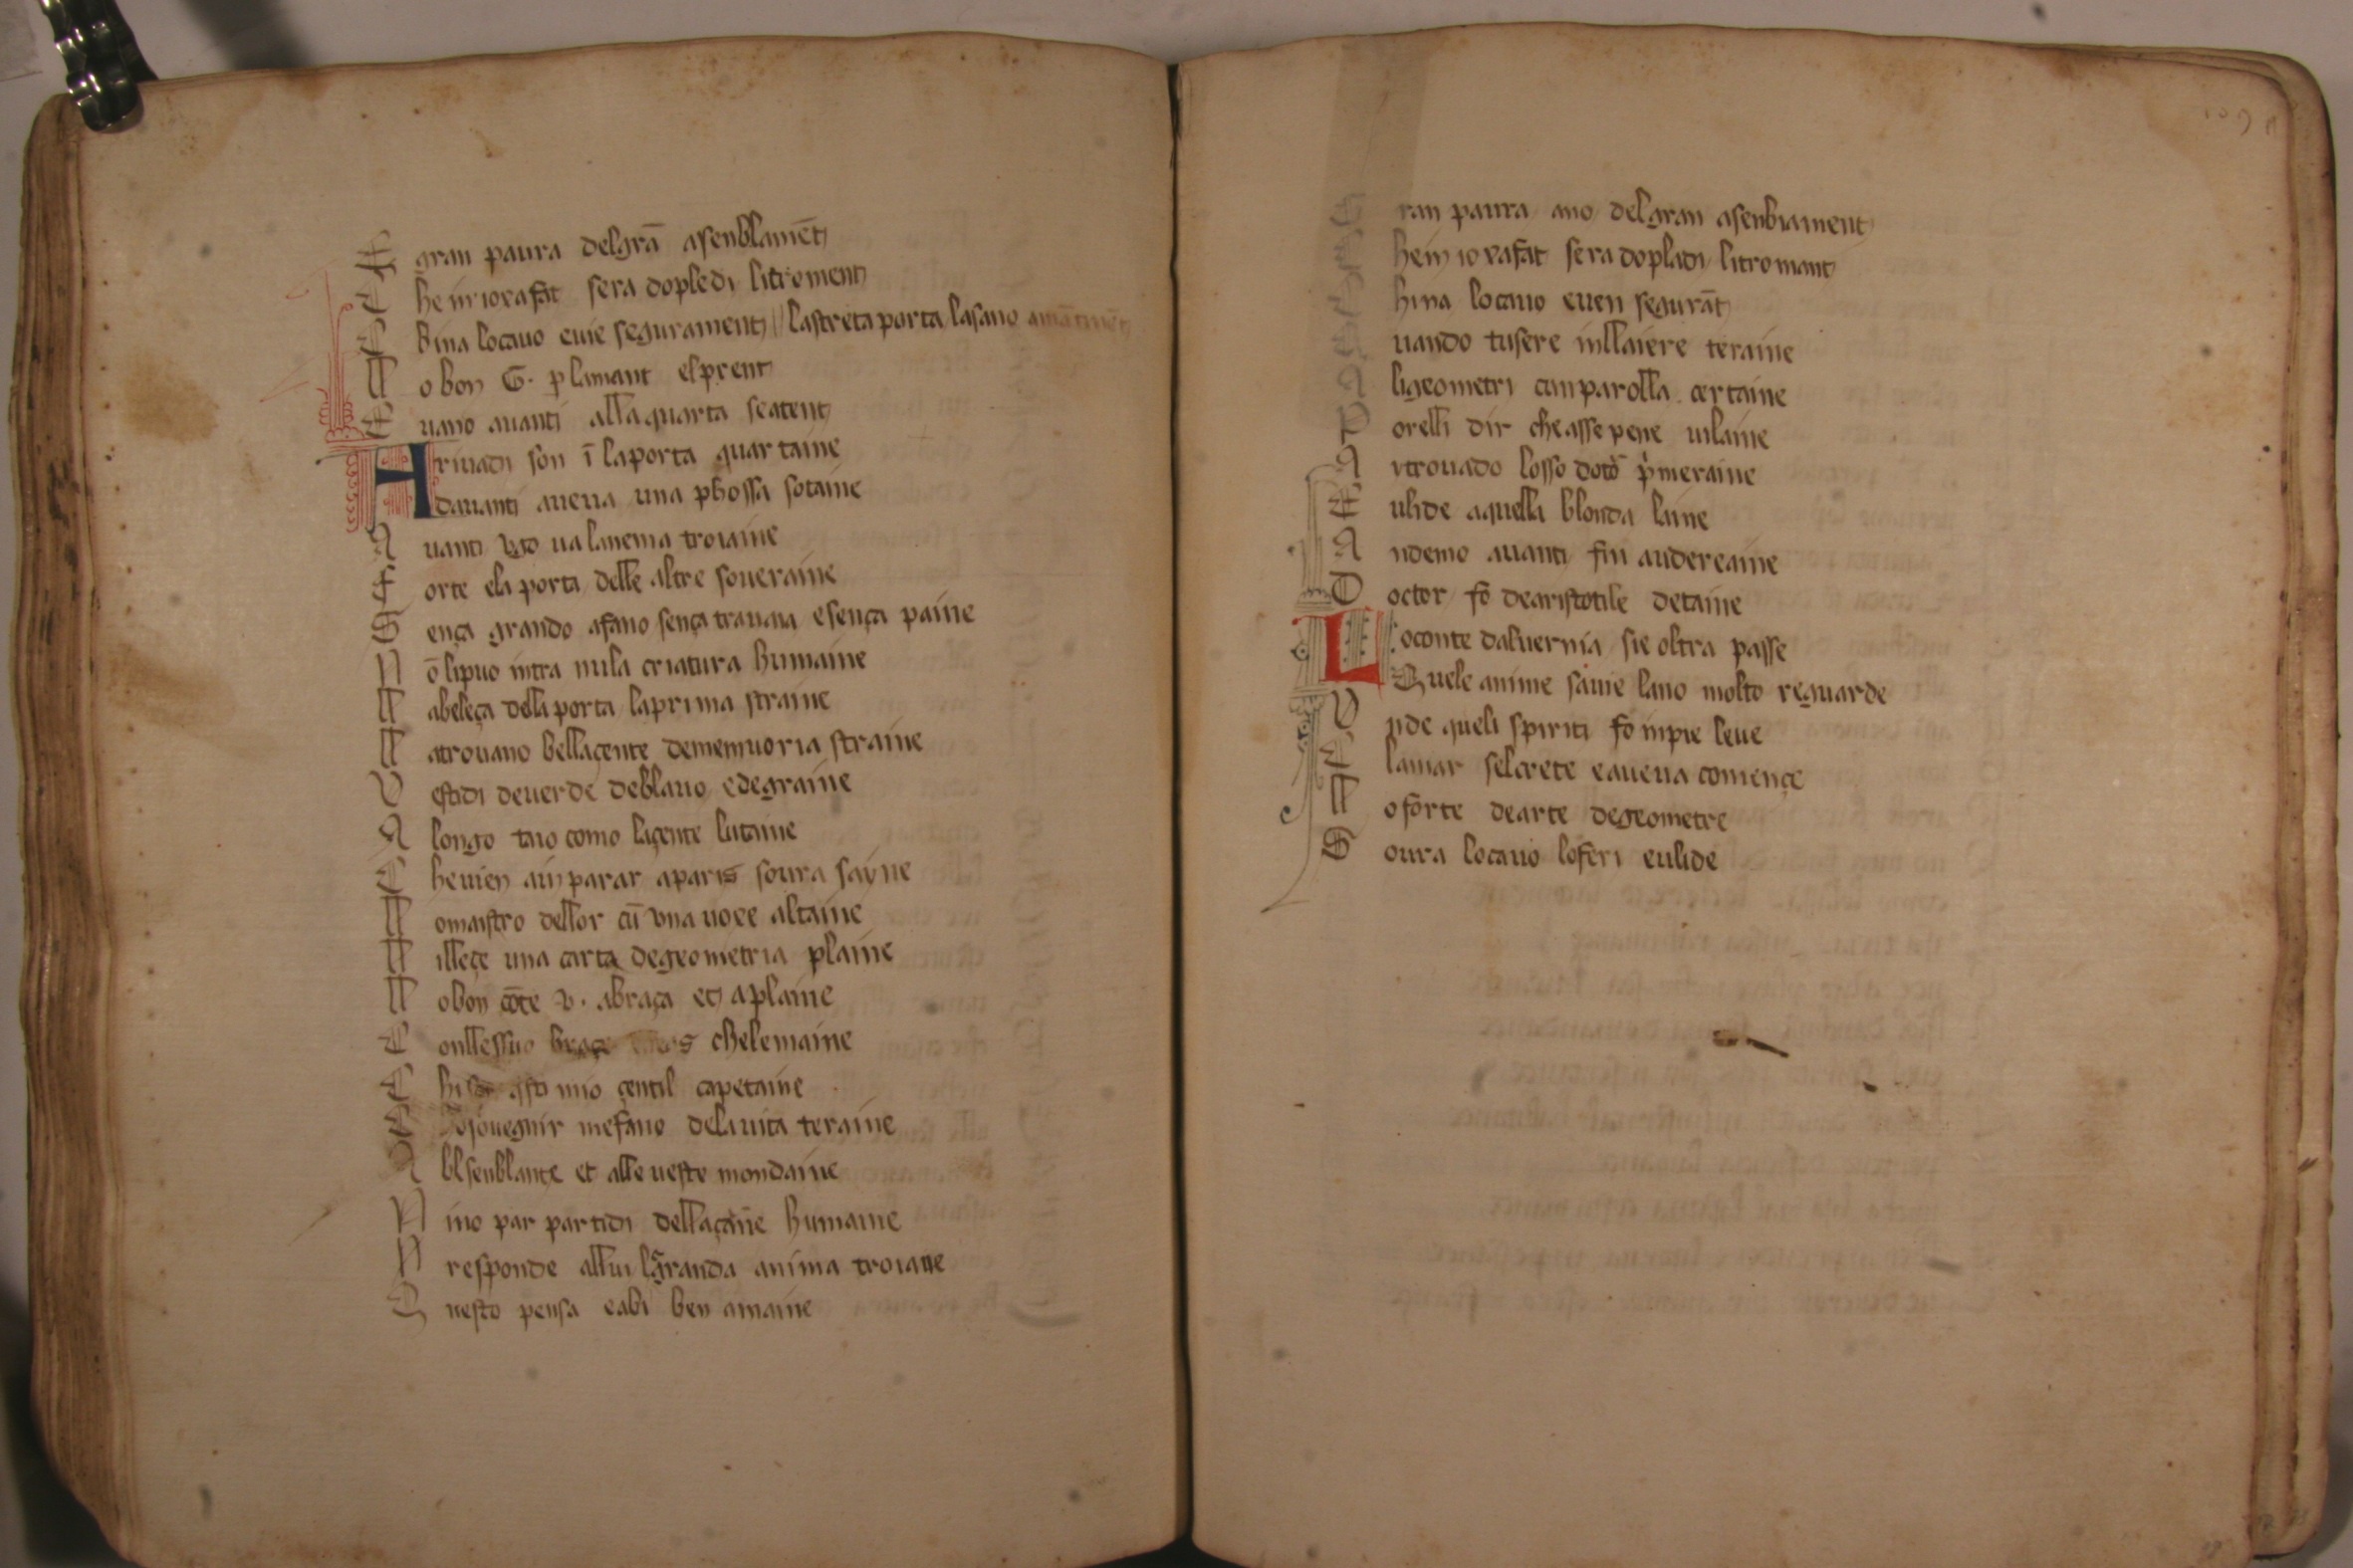 E gran paura delgrā asenblamēt
C he in iorafāt sera dopledi litrement
C hina locauo euie segurament // lastreta porta lasano
L o bon G. p lamant elprent
E uano auanti alla quarta seatent
A riuadi son ī laporta quartaine
dauanti aueua una phossa sotaine
A uanti ugo ua lanema troiaine
F orte ela porta delle altre soueraine
S ença grando afano sença trauaia esença paine
N ō lipuo intra nula criatura humaine
L abeleça della porta laprima straine
L atrouano bellaçente dememuoria straine
V estidi deuerde deblauo edegraine
A longo tuo como laçente lutaine
C heuien ainparar aparis soura sayne
L omaistro dellor cū una uoce altaine
L illeçe una carta degeometria plaine
L obon cōte v. abraça et aplaine
C onllessuo braçe chelemaine
C hi qsti mio çentil capetaine
souegnir mefano delauita teraine
A blsenblante et alle ueste mondaine
N ino par partidi dellaçāne humaine
N responde allui lagranda anima troiane
Q uesto pensa eabi ben amaine
G ran paura ano delgran asenblament
C hein iorafat sera dopladi litromant
C hina locauo euen segurāt
Q uando tusere inllaiere teraine
A ligeometri cunparolla certaine
P orelli dir cheassepene uilaine
A vtrouado losso dotō p̄meraine
E ulide aquella blonda laine
A ndemo auanti fin audereaine
D octor fō dearistotile detaine
L oconte daluernia sie oltra passe
Quele anime sauie lano molto reguarde
V ide queli spiriti fō inpie leue
C lamar selcrete eaueua començe
L o fōrte dearte degeometre
S oura locauo loferi eulide